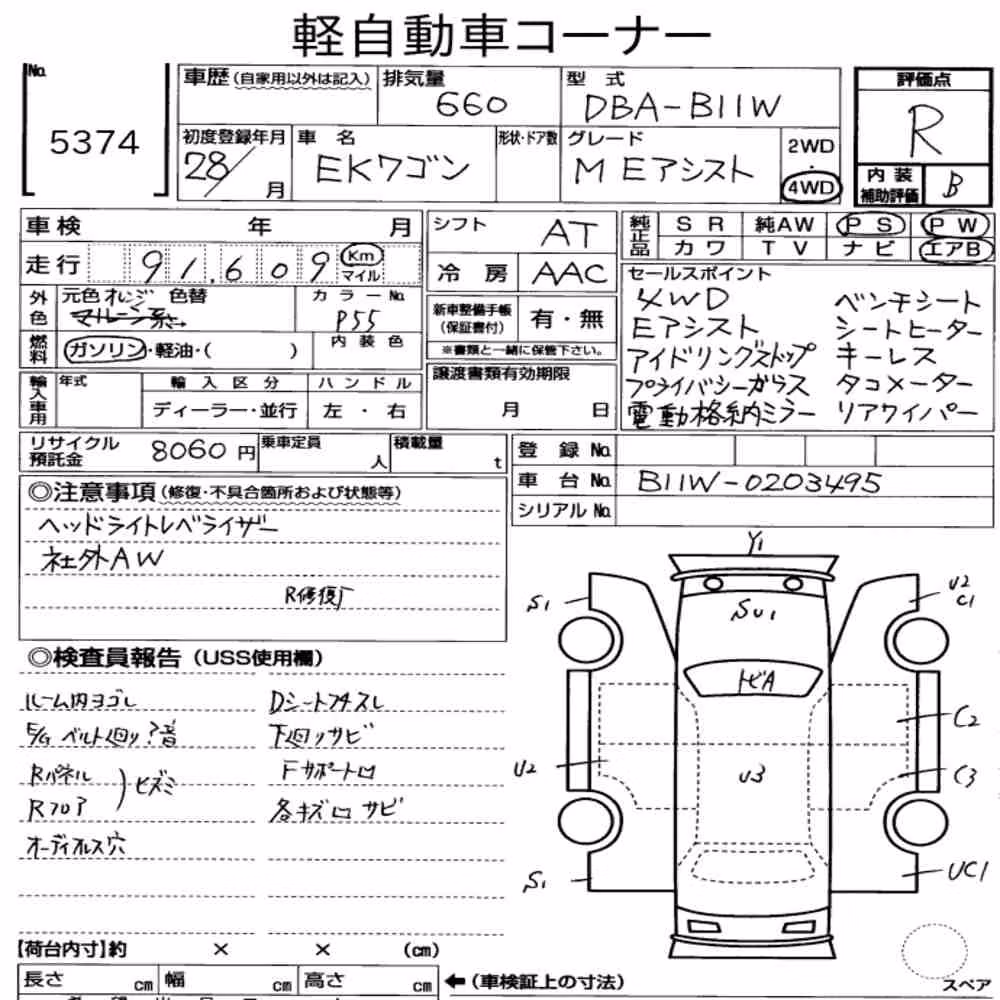 軽自動車コーナー
No.
5374
車歴(自家用以外は記入)
排気量
660
型式
DBA-B11W
評価点
R
初度登録年月
28/
月
車名
EKワゴン
形状・ドア数
グレード
M Eアシスト
2WD
・
4WD
内装
補助評価
B
車検 年 月
走行 91,609 Km
マイル
シフト
AT
冷房
AAC
純正品
SR 純AW PS PW
カワ TV ナビ エアB
外色
元色 オレンジ 色替
カラーNo.
P55
燃料
ガソリン・軽油・( )
内装色
新車整備手帳
(保証書付)
有・無
※書類と一緒に保管下さい。
セールスポイント
4WD ベンチシート
Eアシスト シートヒーター
アイドリングストップ キーレス
プライバシーガラス タコメーター
電動格納ミラー リアワイパー
輸入車用
年式
輸入区分
ハンドル
ディーラー・並行
左・右
譲渡書類有効期限
月 日
リサイクル
預託金
8060円
乗車定員
人
積載量
t
登録No.
車台No.
B11W-0203495
シリアルNo.
◎注意事項(修復・不具合箇所および状態等)
ヘッドライトレベライザー
社外AW
R修復
◎検査員報告(USS使用欄)
ルーム内ヨゴレ Dシートスレ
E/G ベルト廻り?音 下廻りサビ
Rパネル
Rフロア ヒズミ
Fサポート凹
各キズ凹サビ
オーディオレス穴
Y1
S1
SU1
U2
C1
トビA
C2
U2
U3
C3
S1
UC1
【荷台内寸】約 × × (cm)
長さ cm 幅 cm 高さ cm
←(車検証上の寸法)
スペア